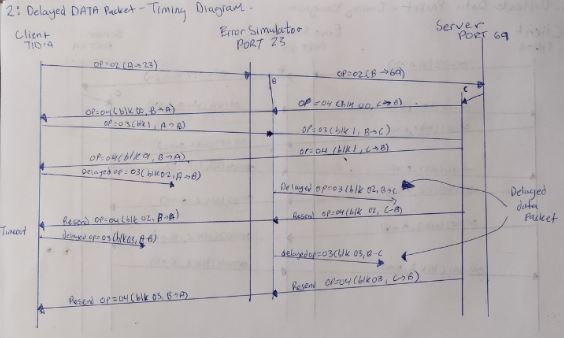 2: Delayed DATA Packet - Timing Diagram.
Client
TID:A
Error Simulator
PORT 23
Server
PORT 69
OP=02 (A→23)
B
OP=02 (B→69)
C
OP=04 (blk 00, C→B)
OP=04 (blk 00, B→A)
OP=03 (blk 1, A→B)
OP=03 (blk 1, B→C)
OP=04 (blk 1, C→B)
OP=04 (blk 01, B→A)
Delayed OP=03 (blk 02, A→B)
Delayed OP=03 (blk 02, B→C
Delayed
data
Packet
Resend OP=04 (blk 02, B→A)
Resend OP=04 (blk 02, C→B)
Timeout
delayed OP=03 (blk 03, A→B)
delayed OP=03 (blk 03, B→C
Resend OP=04 (blk 03, C→B)
Resend OP=04 (blk 03, B→A)